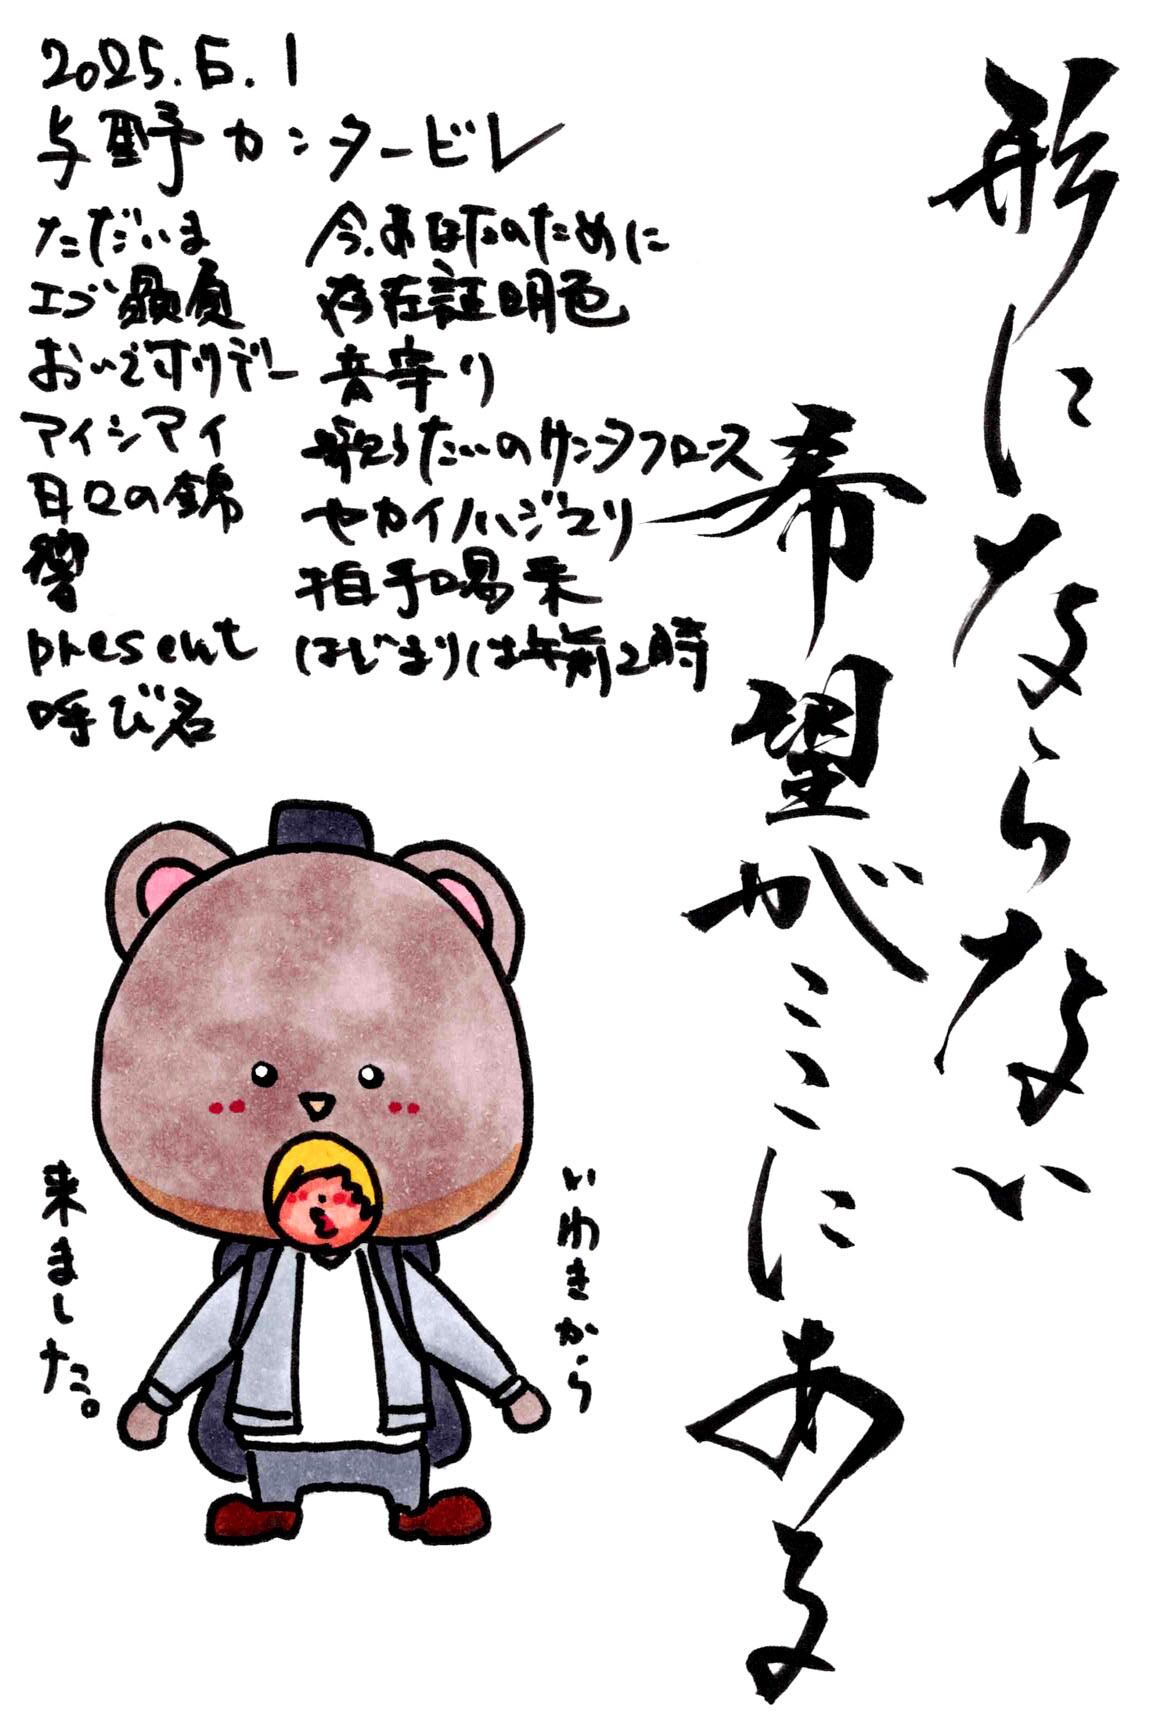 2025.6.1
与野カンタービレ
ただいま
エゴ贔屓
おいでホリデー
アイシマイ
日々の錦
響
present
呼び名
今、あなたのために
存在証明色
音寄り
歌うたいのサンタクロース
セカイノハジマリ
拍手喝采
はじまりは午前2時
形にならない
希望がここにある
いわきから
来ました。